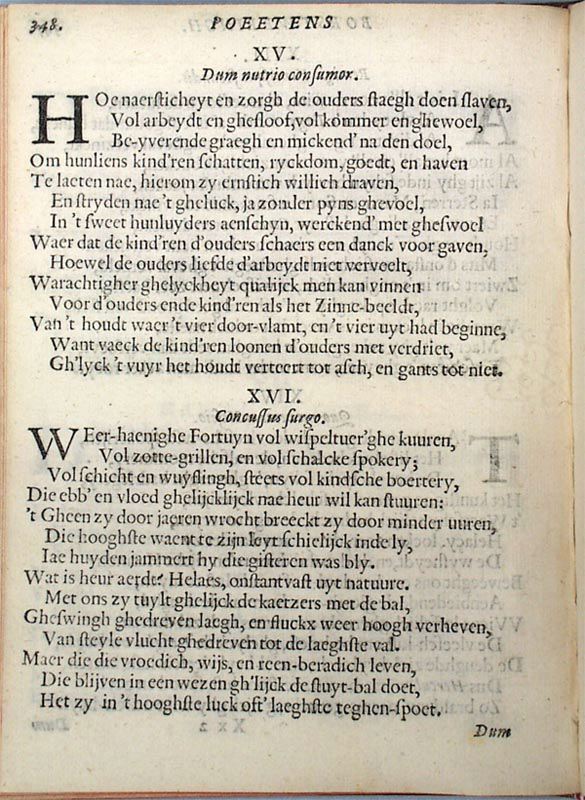 348. POEETENS
XV.
Dum nutrio consumor.
HOe naersticheyt en zorgh de ouders staegh doen slaven,
Vol arbeydt en ghesloof, vol kommer en ghewoel,
Be-yverende graegh en mickend' na den doel,
Om hunliens kind'ren schatten, ryckdom, goedt, en haven
Te laeten nae, hierom zy ernstich willich draven,
En stryden nae 't gheluck, ja zonder pyns ghevoel,
In 't sweet hunluyders aenschyn, werckend' met gheswoel
Waer dat de kind'ren d'ouders schaers een danck voor gaven,
Hoewel de ouders liefde d'arbeydt niet verveelt,
Warachtigher ghelyckheyt qualijck men kan vinnen
Voor d'ouders ende kind'ren als het Zinne-beeldt,
Van 't houdt waer 't vier door-vlamt, en 't vier uyt had beginne,
Want vaeck de kind'ren loonen d'ouders met verdriet,
Gh'lyck 't vuyr het houdt verteert tot asch, en gants tot niet.
XVI.
Concussus surgo.
WEer-haenighe Fortuyn vol wispeltuer'ghe kuuren,
Vol zotte-grillen, en vol schalcke spokery;
Vol schicht en wuyflingh, steets vol kindsche boertery,
Die ebb' en vloed ghelijcklijck nae heur wil kan stuuren:
't Gheen zy door jaeren wrocht breeckt zy door minder uuren,
Die hooghste waent te zijn leyt schielijck inde ly,
Iae huyden jammert hy die gisteren was bly.
Wat is heur aerdt? Helaes, onstantvast uyt natuure.
Met ons zy tuylt ghelijck de kaetzers met de bal,
Gheswingh ghedreven laegh, en fluckx weer hoogh verheven,
Van steyle vlucht ghedreven tot de laeghste val.
Maer die die vroedich, wijs, en reen-beradich leven,
Die blijven in een wezen gh'lijck de stuyt-bal doet,
Het zy in 't hooghste luck oft' laeghste teghen-spoet.
Dum